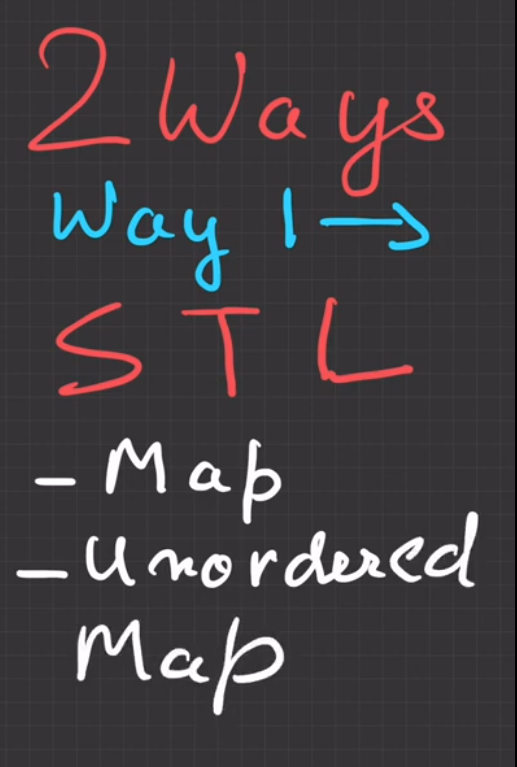 2 Ways
Way 1 →
STL
- Map
- Unordered
Map